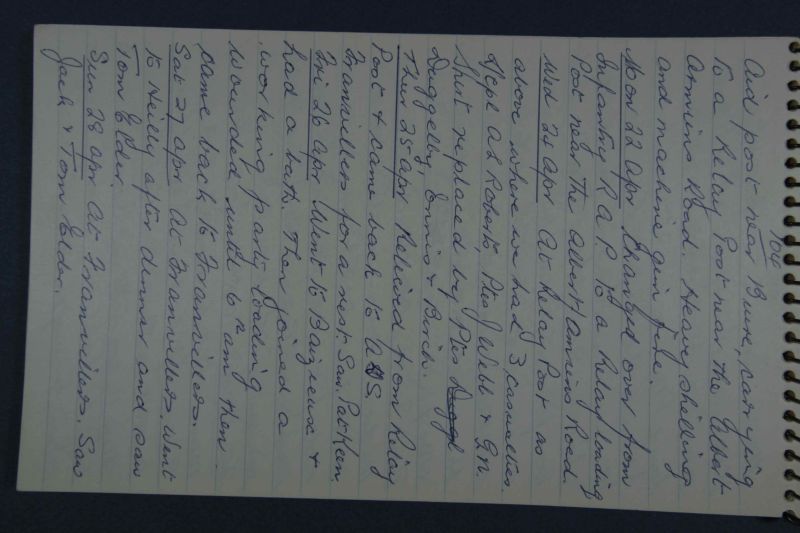 104
Aid post near Buire, carrying
to a Relay Post near the Albert
Amiens Road. Heavy shelling
and machine gun fire.
Mon 22 Apr Changed over from
Infantry R A P. to a Relay loading
Post near the Albert Amiens Road.
Wed 24 Apr At Relay Post as
above where we had 3 casualties.
Roberts, Ptes J Webb &
replaced by Ptes
Duggelby, Ennis & Birch.
Thur 25 Apr Relieved from Relay
Post & came back to ADS.
Franvillers for a rest. Saw Pat Keen.
Fri 26 Apr Went to Baizieux &
had a bath. Then joined a
working party loading
wounded until 6 am then
came back to Franvillers.
Sat 27 Apr At Franvillers. Went
to Heilly after dinner and saw
Tom Elder.
Sun 28 Apr At Franvillers. Saw
Jack & Tom Elder.